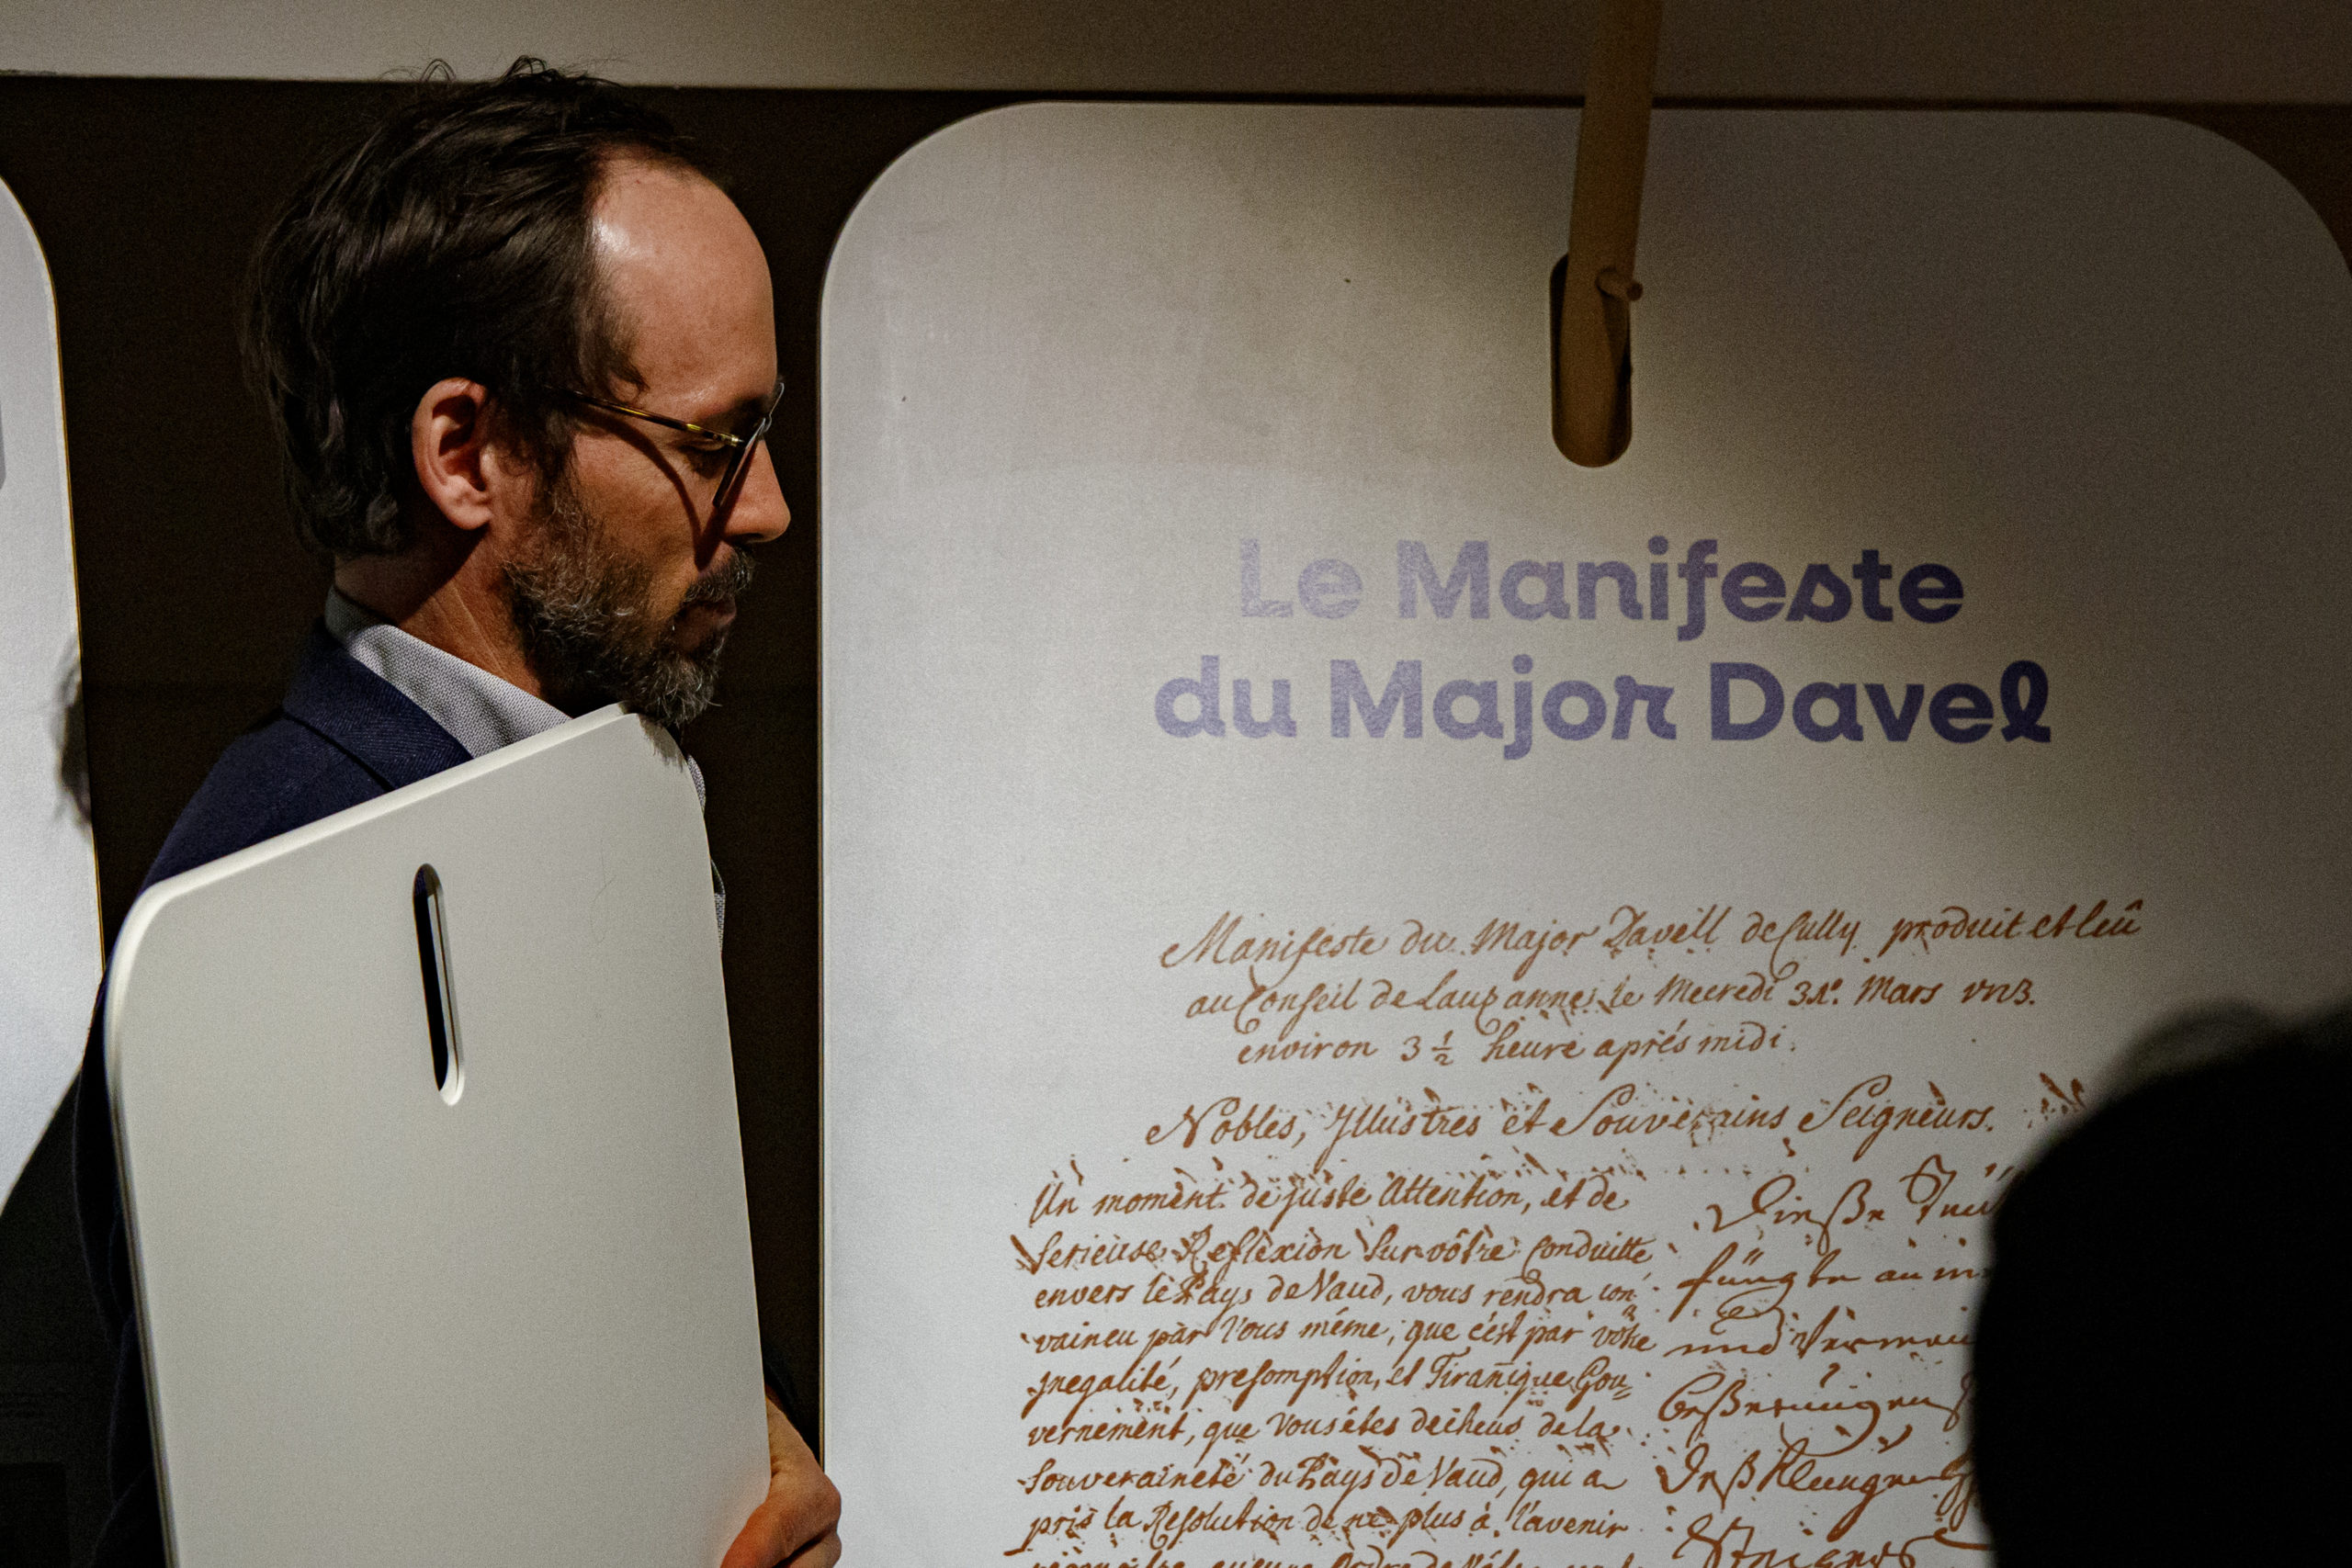 Le Manifeste
du Major Davel
Manifeste du Major Davell de Cully produit et leû
au Conseil de Lausanne, le Mecredi 31e. Mars 1723.
environ 3 1/2 heure aprés midi.
Nobles, Jllustres et Souverains Seigneurs.
Un moment de juste Attention, et de
serieuse Reflexion sur vôtre Conduitte
envers le Pays de Vaud, vous rendra con
vaincu par Vous méme, que c'est par vôtre
jnegalité, presomption, et Tirañique Gou=
vernement, que Vous étes decheus de la
Souveraineté du Pays de Vaud, qui a
pris la Resolution de ne plus à l'avenir